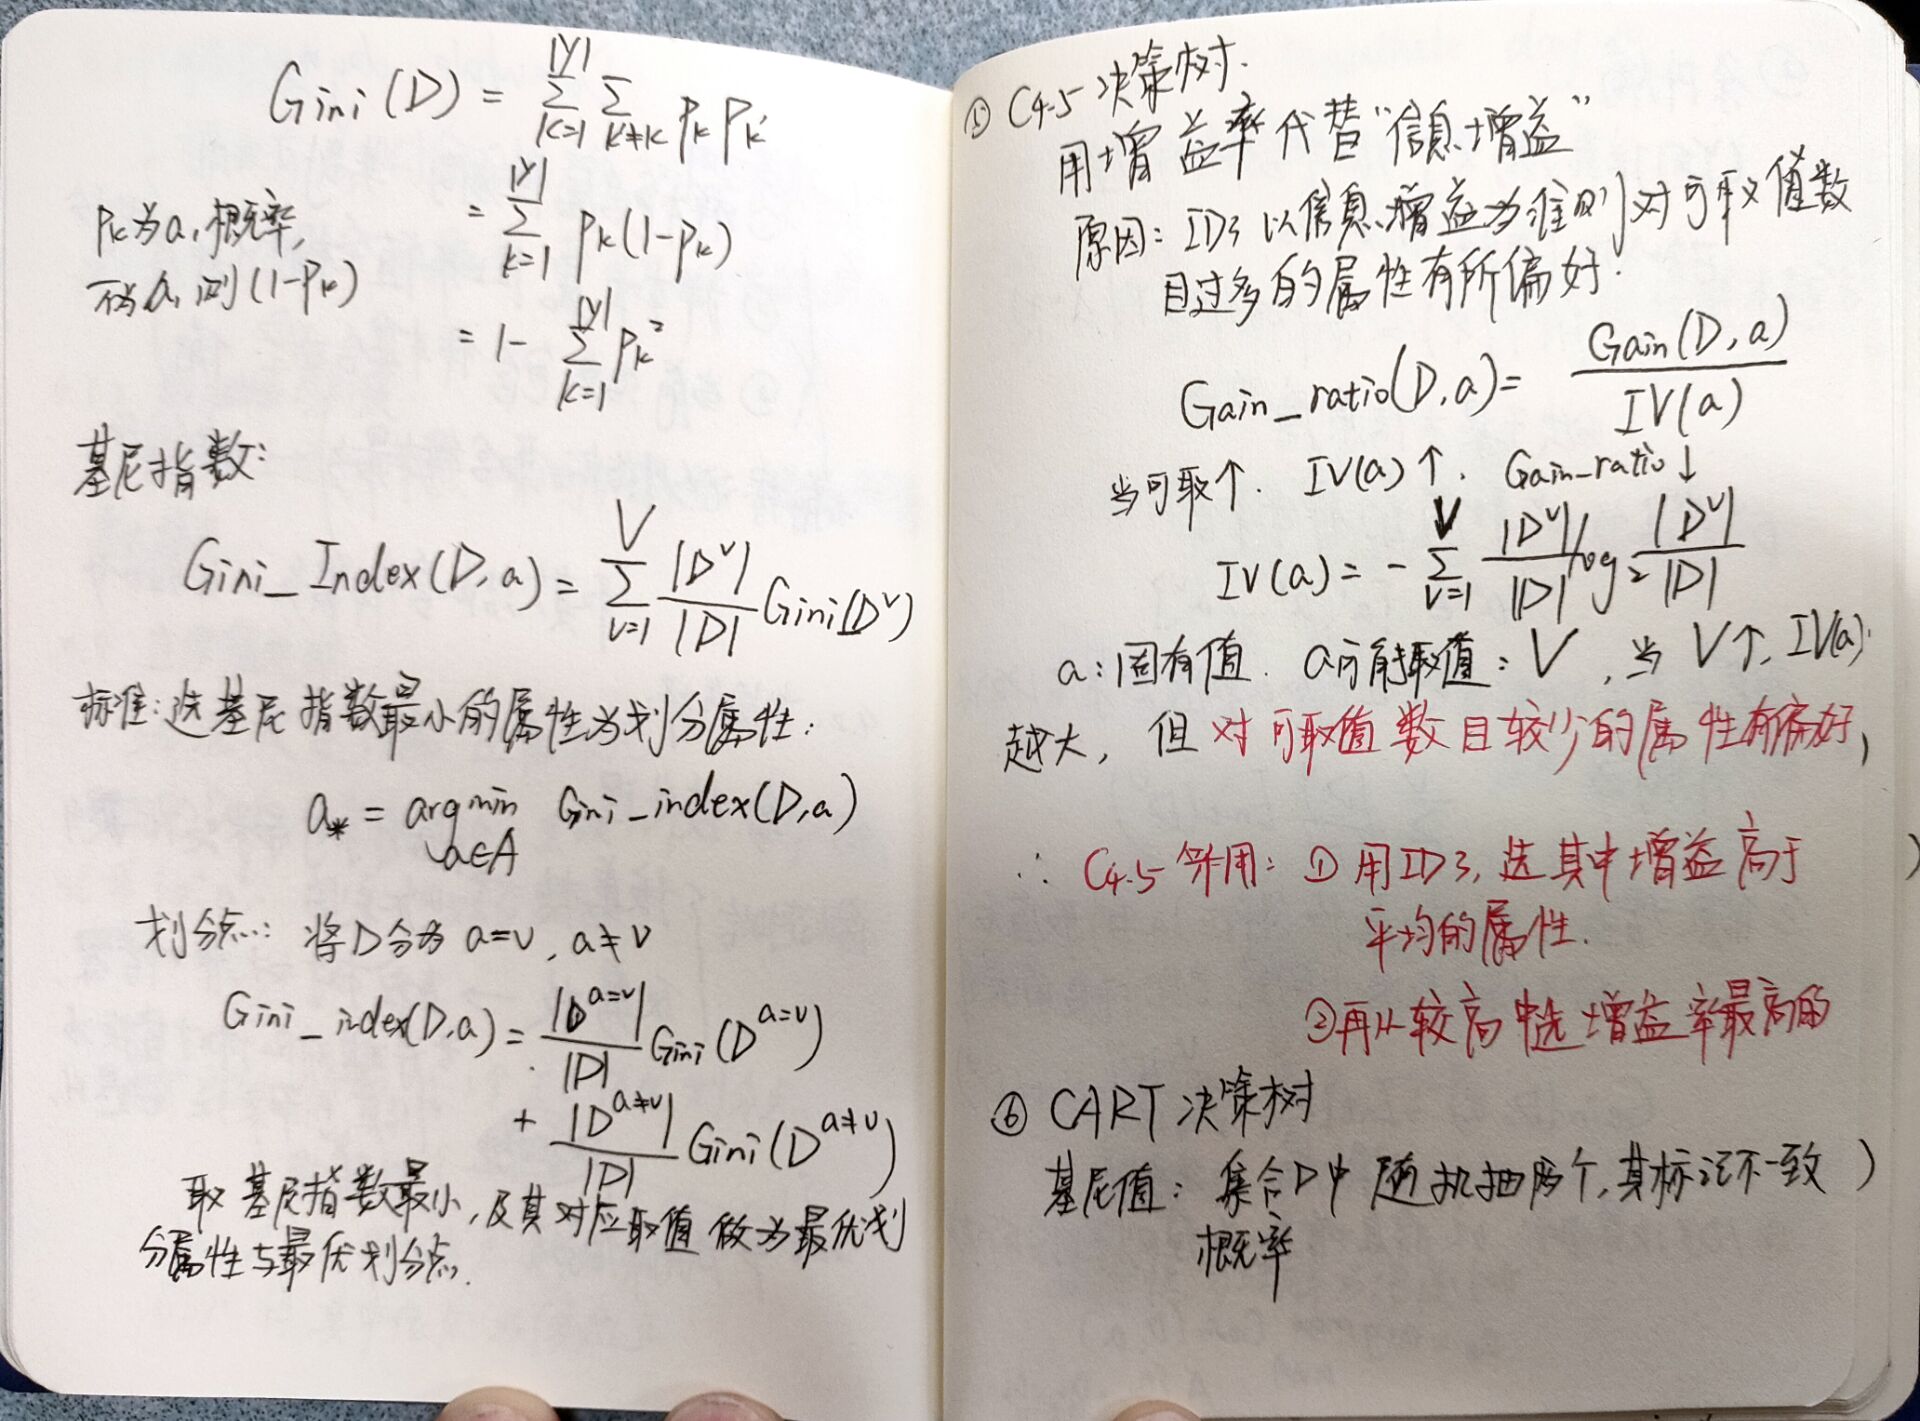 Gini(D) = \sum_{k=1}^{|y|} \sum_{k'≠k} p_k p_{k'}
p_k为a₁概率, = \sum_{k=1}^{|y|} p_k(1-p_k)
不为a₁则(1-p_k)
= 1- \sum_{k=1}^{|y|} p_k^2
基尼指数:
Gini_Index(D,a) = \sum_{v=1}^{V} \frac{|D^v|}{|D|} Gini(D^v)
标准:选基尼指数最小的属性为划分属性:
a_* = argmin_{a∈A} Gini_index(D,a)
划分点: 将D分为 a=v, a≠v
Gini_index(D,a) = \frac{|D^{a=v}|}{|D|} Gini(D^{a=v})
+ \frac{|D^{a≠v}|}{|D|} Gini(D^{a≠v})
取基尼指数最小,及其对应取值做为最优划
分属性与最优划分点.
⑤ C4.5 决策树.
用增益率代替“信息增益”
原因: ID3 以信息增益为准则对可取值数
目过多的属性有所偏好.
Gain_ratio(D,a) = \frac{Gain(D,a)}{IV(a)}
当可取↑. IV(a)↑. Gain_ratio↓
IV(a) = - \sum_{v=1}^{V} \frac{|D^v|}{|D|} log_2 \frac{|D^v|}{|D|}
a:固有值. a可能取值:V, 当V↑, IV(a)
越大, 但对可取值数目较少的属性有偏好,
∴ C4.5 采用: ①用ID3,选其中增益高于
平均的属性.
②再从较高中选增益率最高的
⑥ CART 决策树
基尼值: 集合D中随机抽两个,其标记不一致
概率